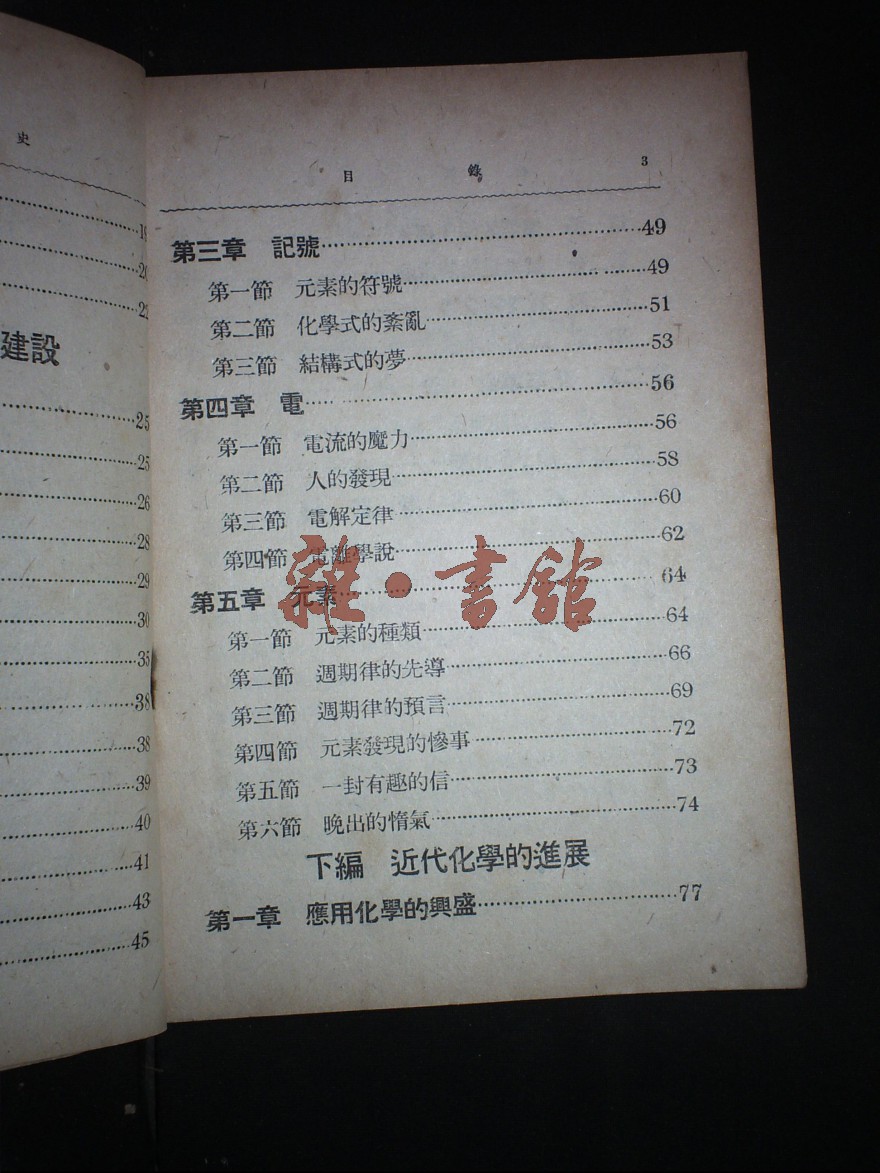 史
19
20
22
建設
25
25
26
28
29
30
35
38
38
39
40
41
43
45
目錄 3
第三章 記號 49
第一節 元素的符號 49
第二節 化學式的紊亂 51
第三節 結構式的夢 53
第四章 電 56
第一節 電流的魔力 56
第二節 人的發現 58
第三節 電解定律 60
第四節 電離學說 62
第五章 元素 64
第一節 元素的種類 64
第二節 週期律的先導 66
第三節 週期律的預言 69
第四節 元素發現的慘事 72
第五節 一封有趣的信 73
第六節 晚出的惰氣 74
下編 近代化學的進展
第一章 應用化學的興盛 77
雜·書館